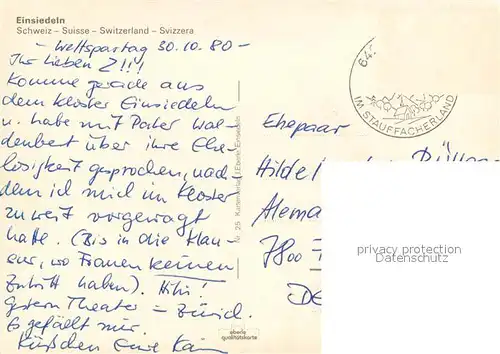 Einsiedeln
Schweiz – Suisse – Switzerland – Svizzera
– Weltspartag 30.10.80 –
Ihr Lieben 2!!!
Komme gerade aus
dem Kloster Einsiedeln
u. habe mit Pater Wal-
denbert über ihre Ehe-
losigkeit gesprochen, nach-
dem ich mich im Kloster
zu weit vorgewagt
hatte. (Bis in die Klau-
sur, wo Frauen keinen
Zutritt haben). Hihi!
Gestern Theater – Zürich.
Es gefällt mir.
Küßchen Eure
Nr. 25 Kartenverlag Eberle Einsiedeln
eberle
qualitätskarte
IM STAUFFACHERLAND
Ehepaar
Hilde
Alema
7800
DE
privacy protection
Datenschutz